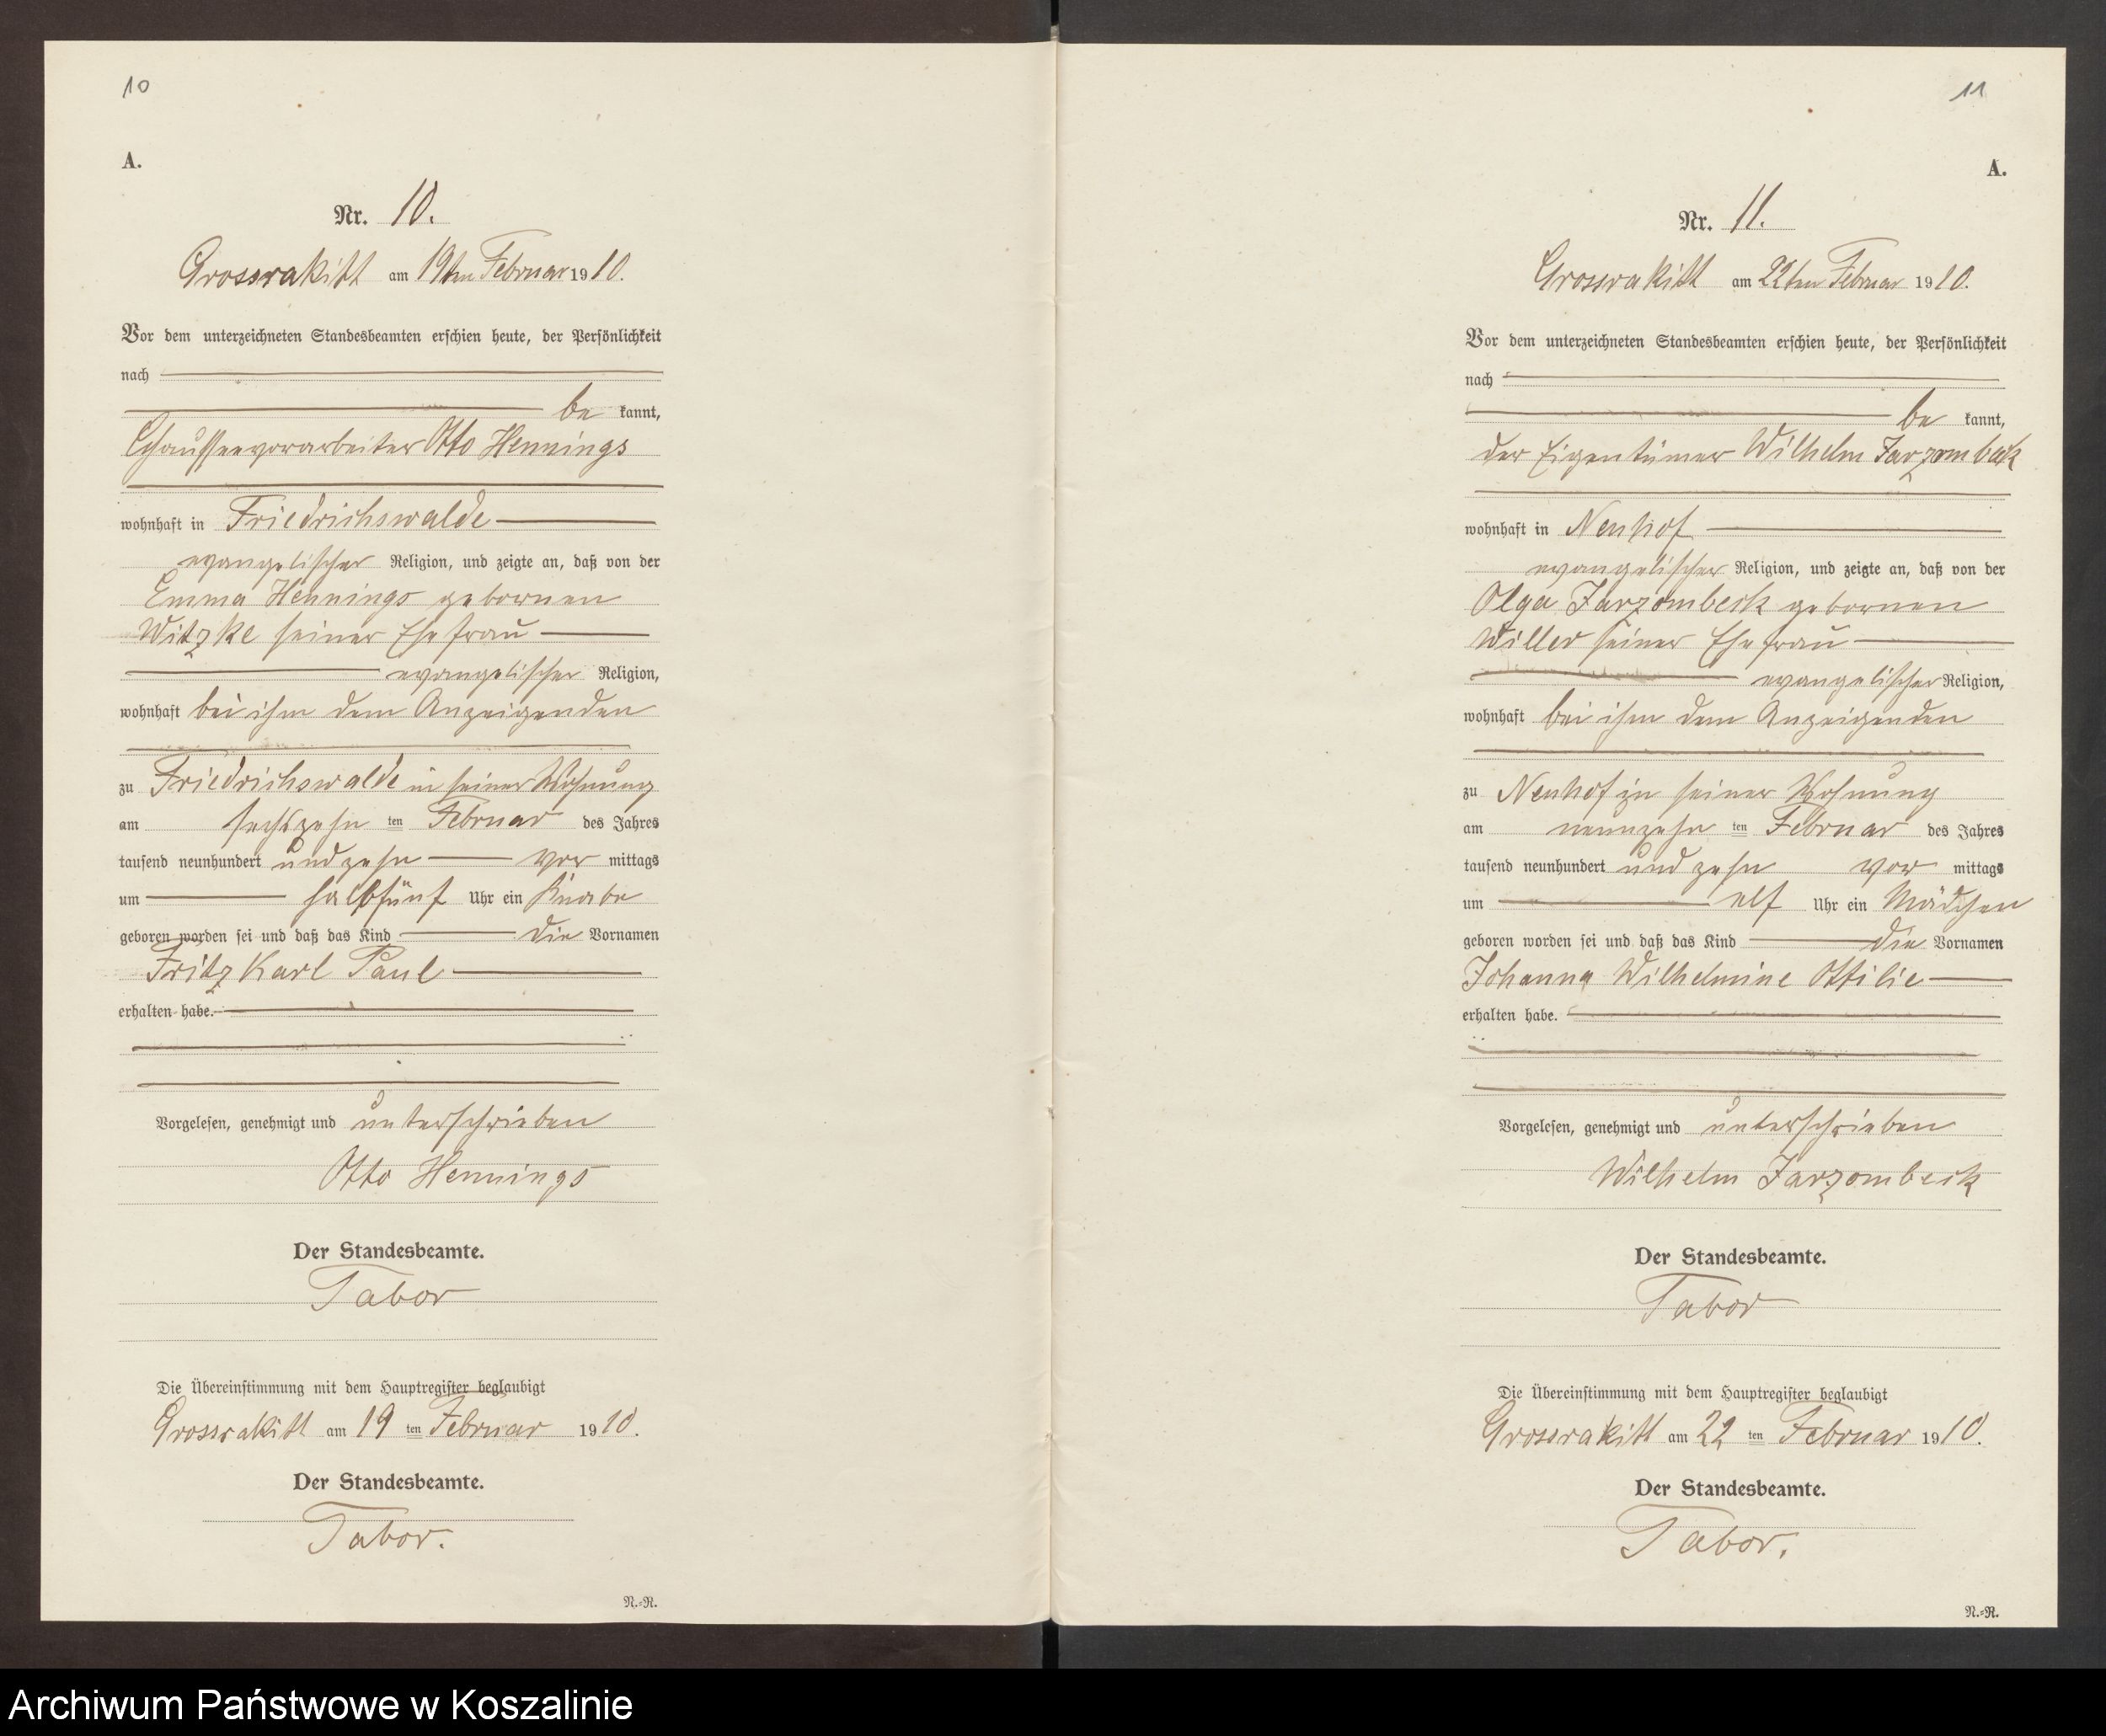 10
A.
Nr. 10.
Grossrakitt am 19ten Februar 1910.
Vor dem unterzeichneten Standesbeamten erschien heute, der Persönlichkeit
nach
be kannt,
Chausseevorarbeiter Otto Hennings
wohnhaft in Friedrichswalde
evangelischer Religion, und zeigte an, daß von der
Emma Hennings gebornen
Witzke seiner Ehefrau
evangelischer Religion,
wohnhaft bei ihm dem Anzeigenden
zu Friedrichswalde in seiner Wohnung
am sechszehn ten Februar des Jahres
tausend neunhundert und zehn vor mittags
um halbfünf Uhr ein Knabe
geboren worden sei und daß das Kind die Vornamen
Fritz Karl Paul
erhalten habe.
Vorgelesen, genehmigt und unterschrieben
Otto Hennings
Der Standesbeamte.
Tabor
Die Übereinstimmung mit dem Hauptregister beglaubigt
Grossrakitt am 19 ten Februar 1910.
Der Standesbeamte.
Tabor.
N.-R.
11
A.
Nr. 11.
Grossrakitt am 22ten Februar 1910.
Vor dem unterzeichneten Standesbeamten erschien heute, der Persönlichkeit
nach
be kannt,
der Eigentümer Wilhelm Jarzombek
wohnhaft in Neuhof
evangelischer Religion, und zeigte an, daß von der
Olga Jarzombeck gebornen
Willer seiner Ehefrau
evangelischer Religion,
wohnhaft bei ihm dem Anzeigenden
zu Neuhof in seiner Wohnung
am neunzehn ten Februar des Jahres
tausend neunhundert und zehn vor mittags
um elf Uhr ein Mädchen
geboren worden sei und daß das Kind die Vornamen
Johanna Wilhelmine Ottilie
erhalten habe.
Vorgelesen, genehmigt und unterschrieben
Wilhelm Jarzombeck
Der Standesbeamte.
Tabor
Die Übereinstimmung mit dem Hauptregister beglaubigt
Grossrakitt am 22 ten Februar 1910.
Der Standesbeamte.
Tabor.
N.-R.
Archiwum Państwowe w Koszalinie